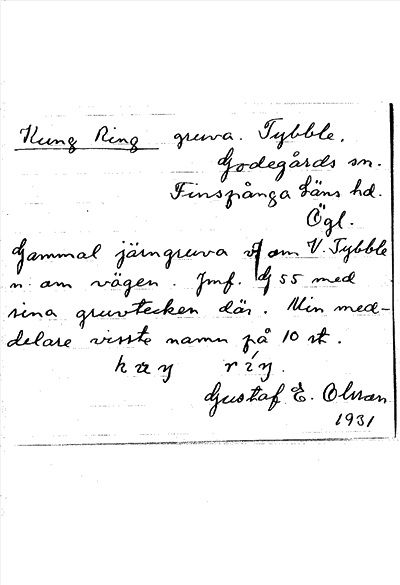 Kung Ring gruva. Tybble.
Godegårds sn.
Finspånga läns hd.
Ögl.
Gammal järngruva v om V. Tybble
n. om vägen. Jmf. G 55 med
sina gruvtecken där. Min med-
delare visste namn på 10 st.
Gustaf E. Olsson
1931